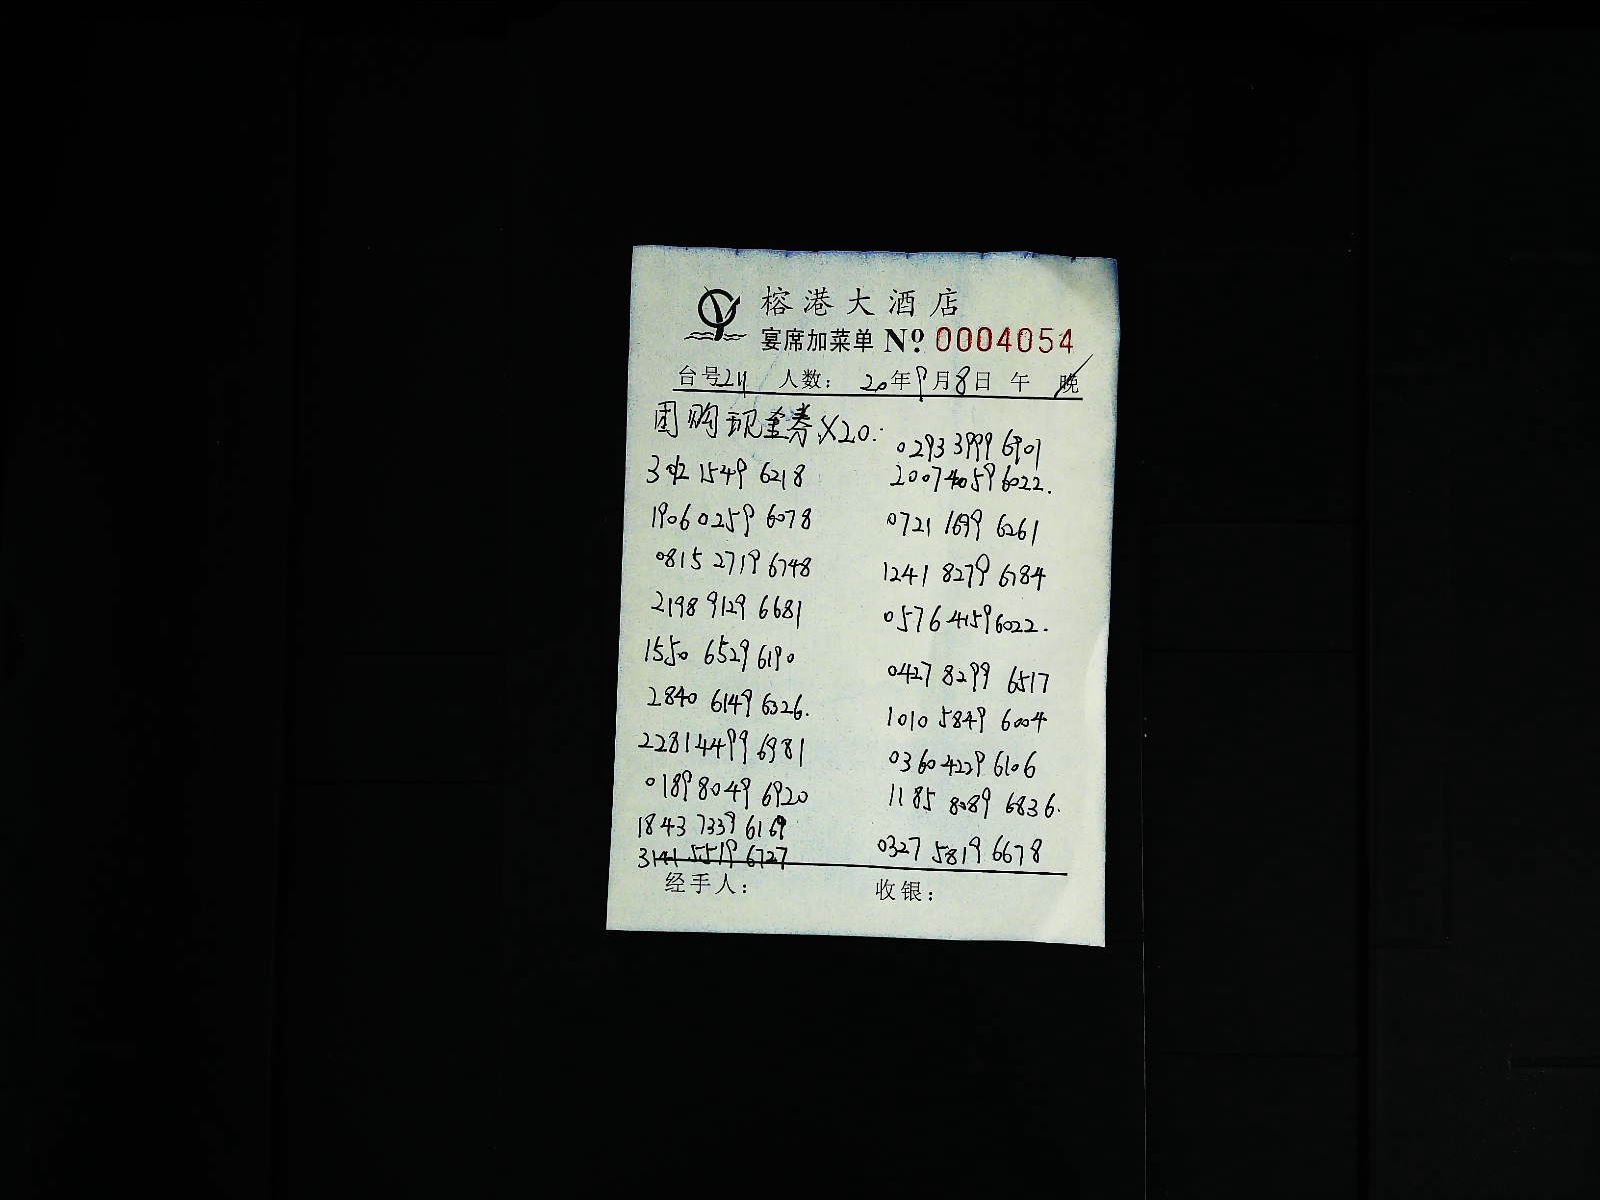 榕港大酒店
宴席加菜单 Nº 0004054
台号211 人数: 20年9月8日 午 晚
团购现金券X20:
1549 6218
1906 0259 6078
0815 2719 6748
2198 9129 6681
1550 6529 6190
2840 6149 6326.
2281 4499 6981
0189 8049 6920
1843 7339 6169
3141 5519 6727
0293 3999 6901
2007 4059 6022.
0721 1699 6261
1241 8279 6784
0576 4159 6022.
0427 8299 6517
1010 5849 6004
0360 4229 6106
1185 8089 6836.
0327 5819 6678
经手人: 收银: